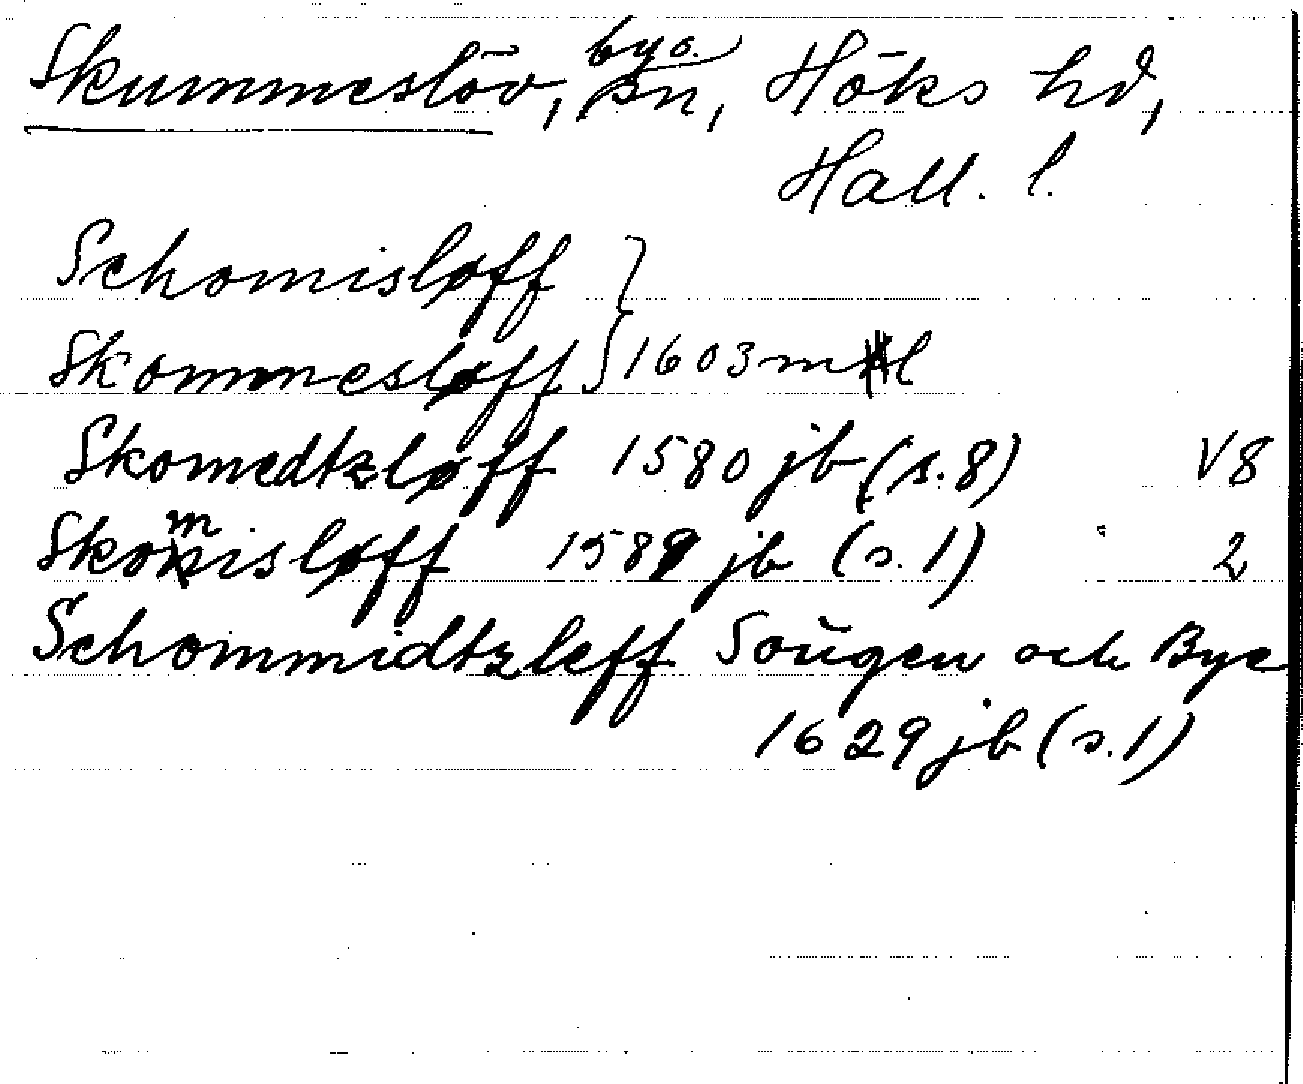 Skummeslöv, by o. sn, Höks hd,
Hall. l.
Schomisløff }
Skommesløff } 1603 m l
Skomedtzløff 1580 jb (s. 8) V8
Skomisløff 1589 jb (s. 1) 2
Schommidtzleff Sougen och Bye
1629 jb (s. 1)